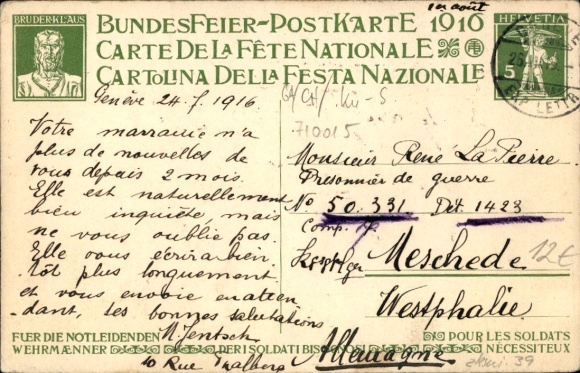 BRUDER KLAUS
BUNDESFEIER-POSTKARTE 1916
1er août
CARTE DE LA FÊTE NATIONALE
CARTOLINA DELLA FESTA NAZIONALE
HELVETIA
5
Genève 24.7.1916
710015
Votre marraine n'a
plus de nouvelles de
vous depuis 2 mois.
Elle est naturellement
bien inquiète, mais
ne vous oublie pas.
Elle vous écrira bien
tôt plus longuement
et vous envoie en atten
dant, ses bonnes salutations
M. Jentsch
10 Rue Thalberg
Monsieur René La Pierre
Prisonnier de guerre
No 50.331 Dét. 1423
Comp. 7
Meschede
12€
Westphalie
Allemagne
FUER DIE NOTLEIDENDEN
WEHRMÆNNER
DEI SOLDATI BISOGNOSI
POUR LES SOLDATS
NÉCESSITEUX